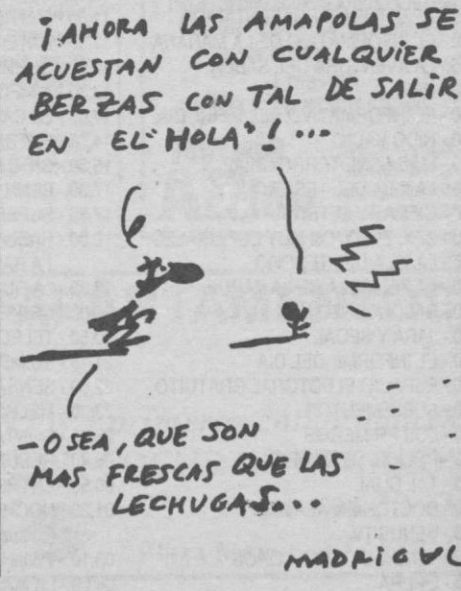 ¡AHORA LAS AMAPOLAS SE
ACUESTAN CON CUALQUIER
BERZAS CON TAL DE SALIR
EN EL "HOLA"! ...
- O SEA, QUE SON
MAS FRESCAS QUE LAS
LECHUGAS...
MADRIGAL